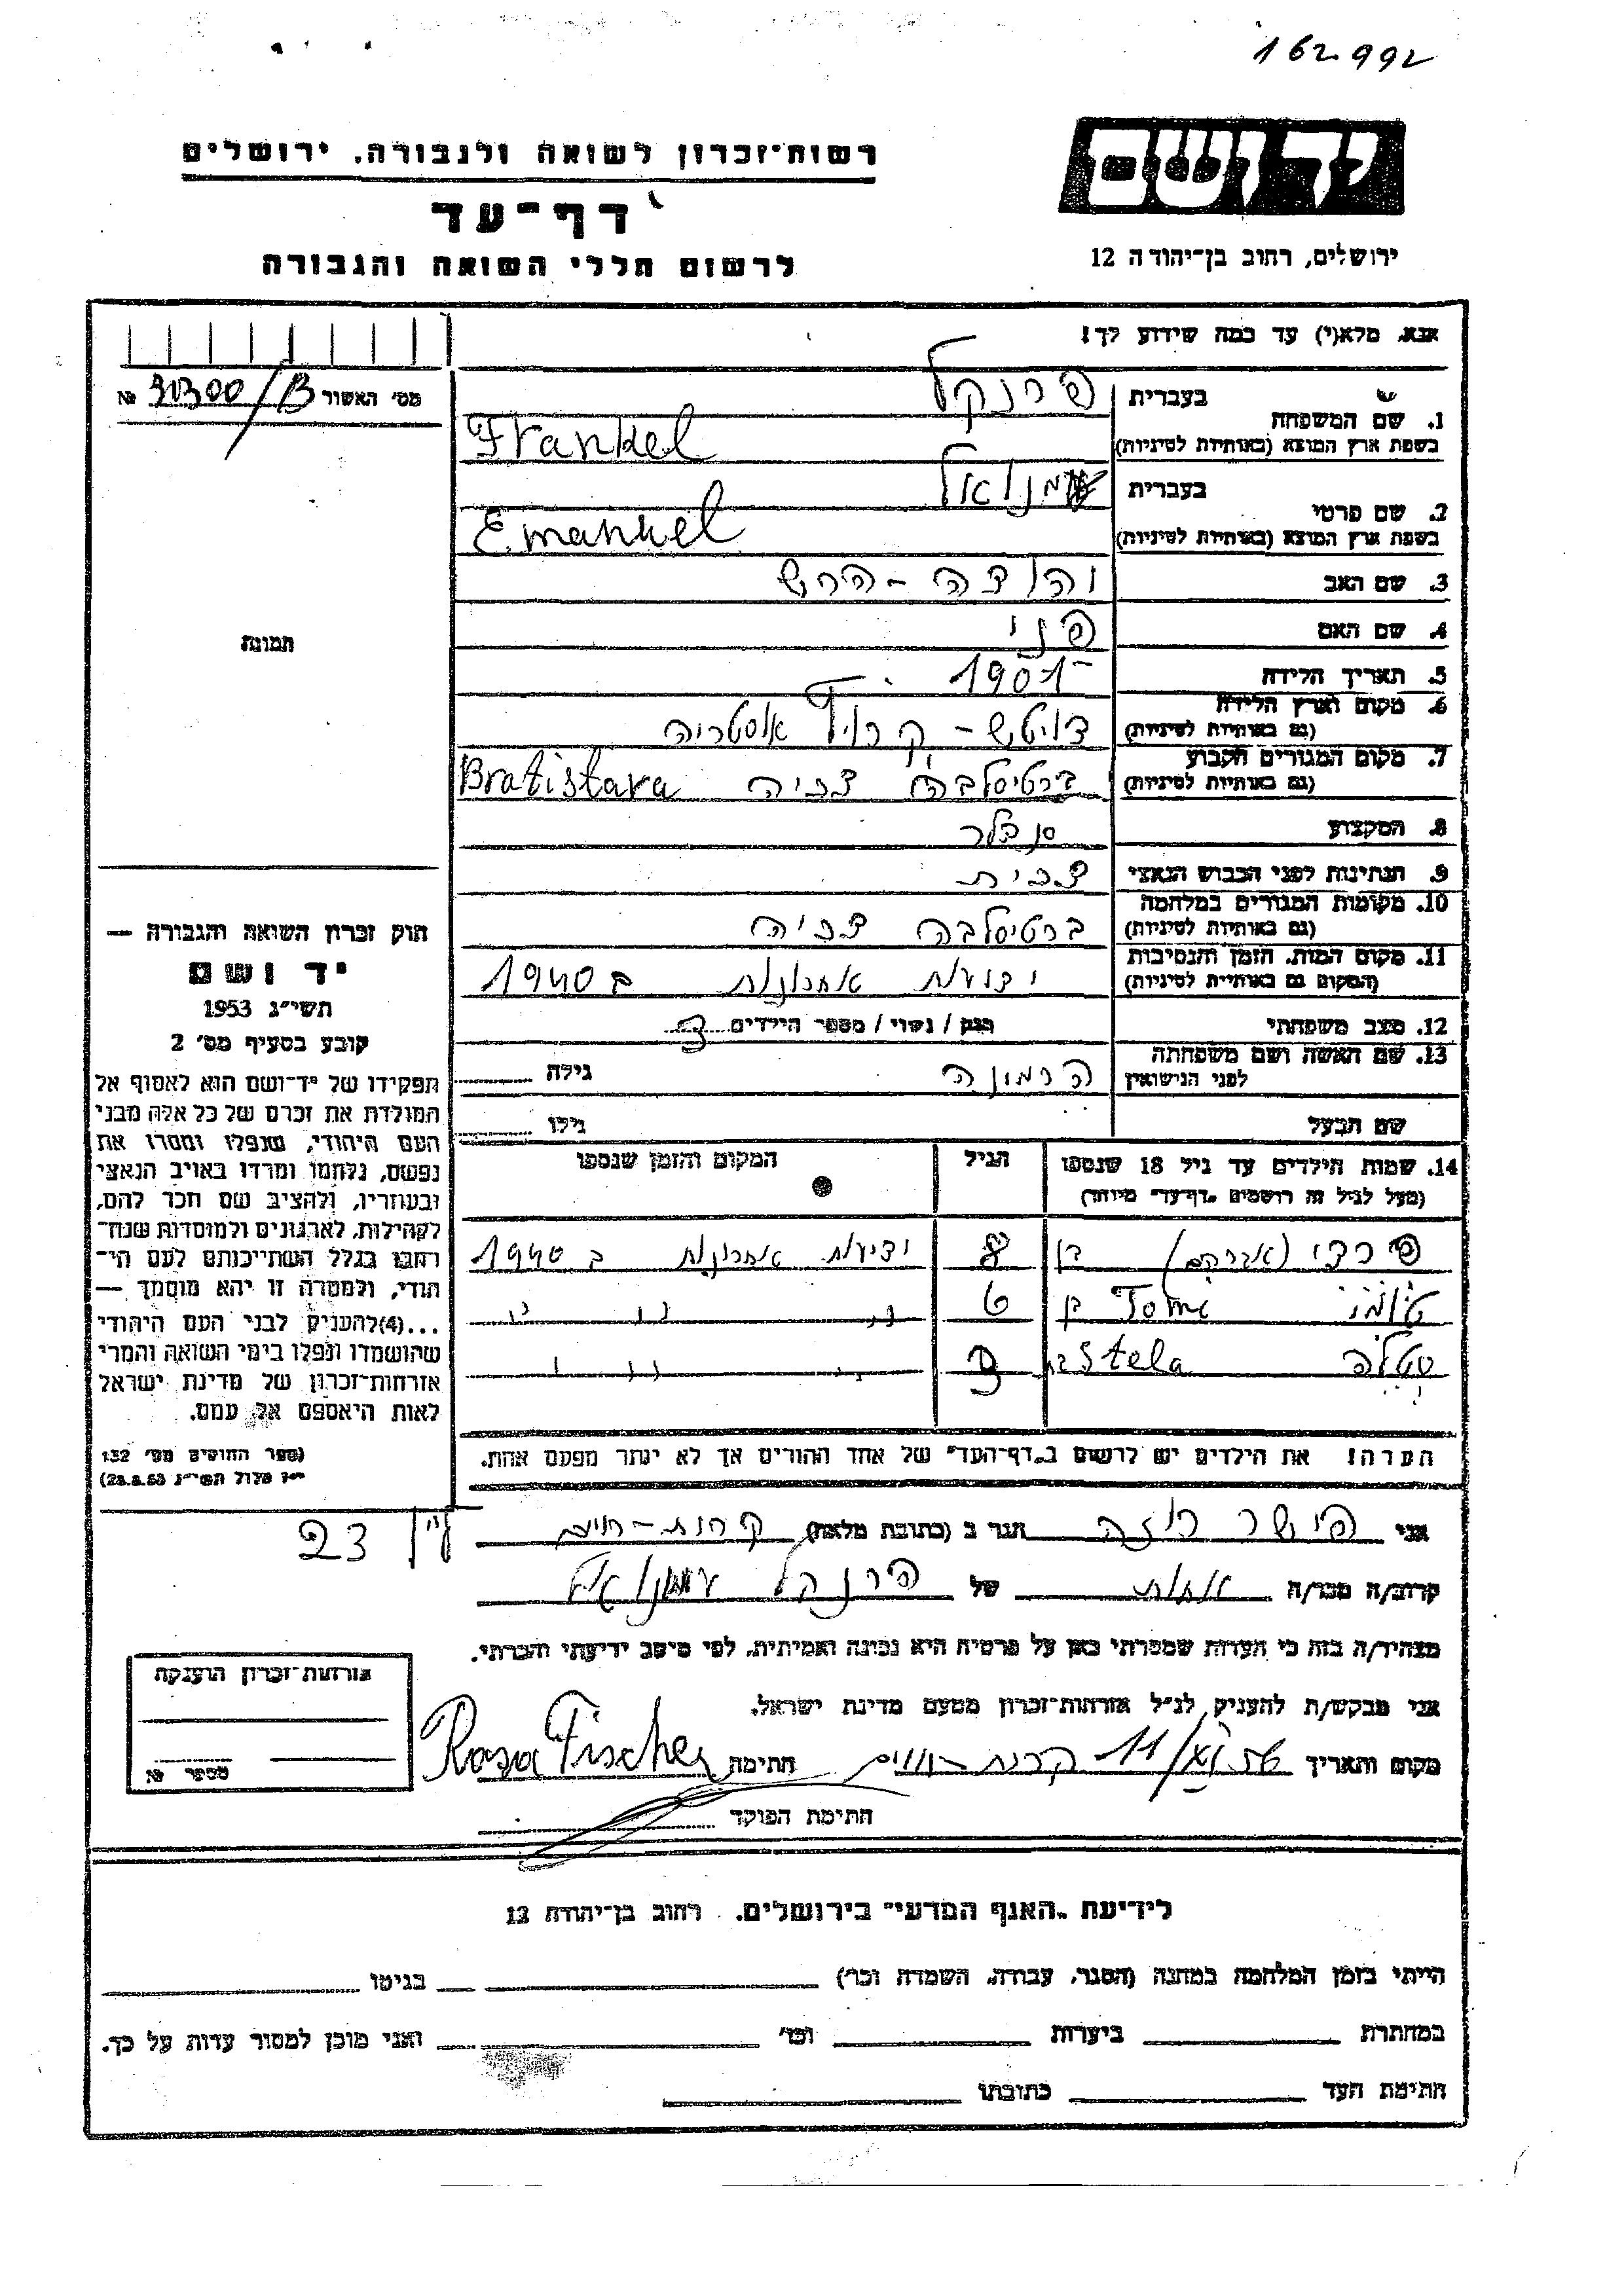 162.992
יד ושם
רשות־זכרון לשואה ולגבורה, ירושלים
דף־עד
לרשום חללי השואה והגבורה
ירושלים, רחוב בן־יהודה 12
אנא, מלא(י) עד כמה שידוע לך!
מס׳ האשור №
1. שם המשפחה בעברית פרנקל
בשפת ארץ המוצא (באותיות לטיניות) Frankel
2. שם פרטי בעברית עמנואל
בשפת ארץ המוצא (באותיות לטיניות) Emanuel
3. שם האב
4. שם האם פני
5. תאריך הלידה 1901
6. מקום וארץ הלידה
(גם באותיות לטיניות) אוסטריה
7. מקום המגורים הקבוע
(גם באותיות לטיניות) ברטיסלבה צכיה Bratislava
8. המקצוע סנדלר
9. הנתינות לפני הכבוש הנאצי צכית
10. מקומות המגורים במלחמה
(גם באותיות לטיניות) ברטיסלבה צכיה
11. מקום המות, הזמן והנסיבות
(המקום גם באותיות לטיניות) ידיעות אחרונות ב 1940
12. מצב משפחתי רווק / נשוי / מספר הילדים 3
13. שם האשה ושם משפחתה
לפני הנישואין הרמונה גילה
שם הבעל גילו
14. שמות הילדים עד גיל 18 שנספו הגיל המקום והזמן שנספו
(מעל לגיל זה רושמים „דף־עד״ מיוחד)
פרדי (אברהם) בן 8 ידיעות אחרונות ב 1940
טומי Tome בן 6 ״ ״ ״
סטלה Stela בת 3 ״ ״ ״
הערה! את הילדים יש לרשום ב„דף־העד״ של אחד ההורים אך לא יותר מפעם אחת.
תמונה
חוק זכרון השואה והגבורה —
יד ושם
תשי״ג 1953
קובע בסעיף מס׳ 2
תפקידו של יד־ושם הוא לאסוף אל
המולדת את זכרם של כל אלה מבני
העם היהודי, שנפלו ומסרו את
נפשם, נלחמו ומרדו באויב הנאצי
ובעוזריו, ולהציב שם וזכר להם,
לקהילות, לארגונים ולמוסדות שנח־
רבו בגלל השתייכותם לעם הי־
הודי, ולמטרה זו יהא מוסמך —
...(4)להעניק לבני העם היהודי
שהושמדו ונפלו בימי השואה והמרי
אזרחות־זכרון של מדינת ישראל
לאות היאספם אל עמם.
(ספר החוקים מס׳ 132
י״ז אלול תשי״ג 28.8.53)
אני פישר רוזה הגר ב (כתובת מלאה) קרית-חיים 23
קרוב/ה מכר/ה אחות של פרנקל עמנואל
מצהיר/ה בזה כי העדות שמסרתי כאן על פרטיה היא נכונה ואמיתית, לפי מיטב ידיעתי והכרתי.
אני מבקש/ת להעניק לנ״ל אזרחות־זכרון מטעם מדינת ישראל.
מקום ותאריך קרית-חיים 11/XI 56 חתימה Rosa Fischer
חתימת הפוקד
אזרחות־זכרון הוענקה
מספר №
לידיעת „האגף המדעי״ בירושלים, רחוב בן־יהודה 12
הייתי בזמן המלחמה במחנה (הסגר, עבודה, השמדה וכו׳) בגיטו
במחתרת ביערות וכו׳ ואני מוכן למסור עדות על כך.
חתימת העד כתובתו